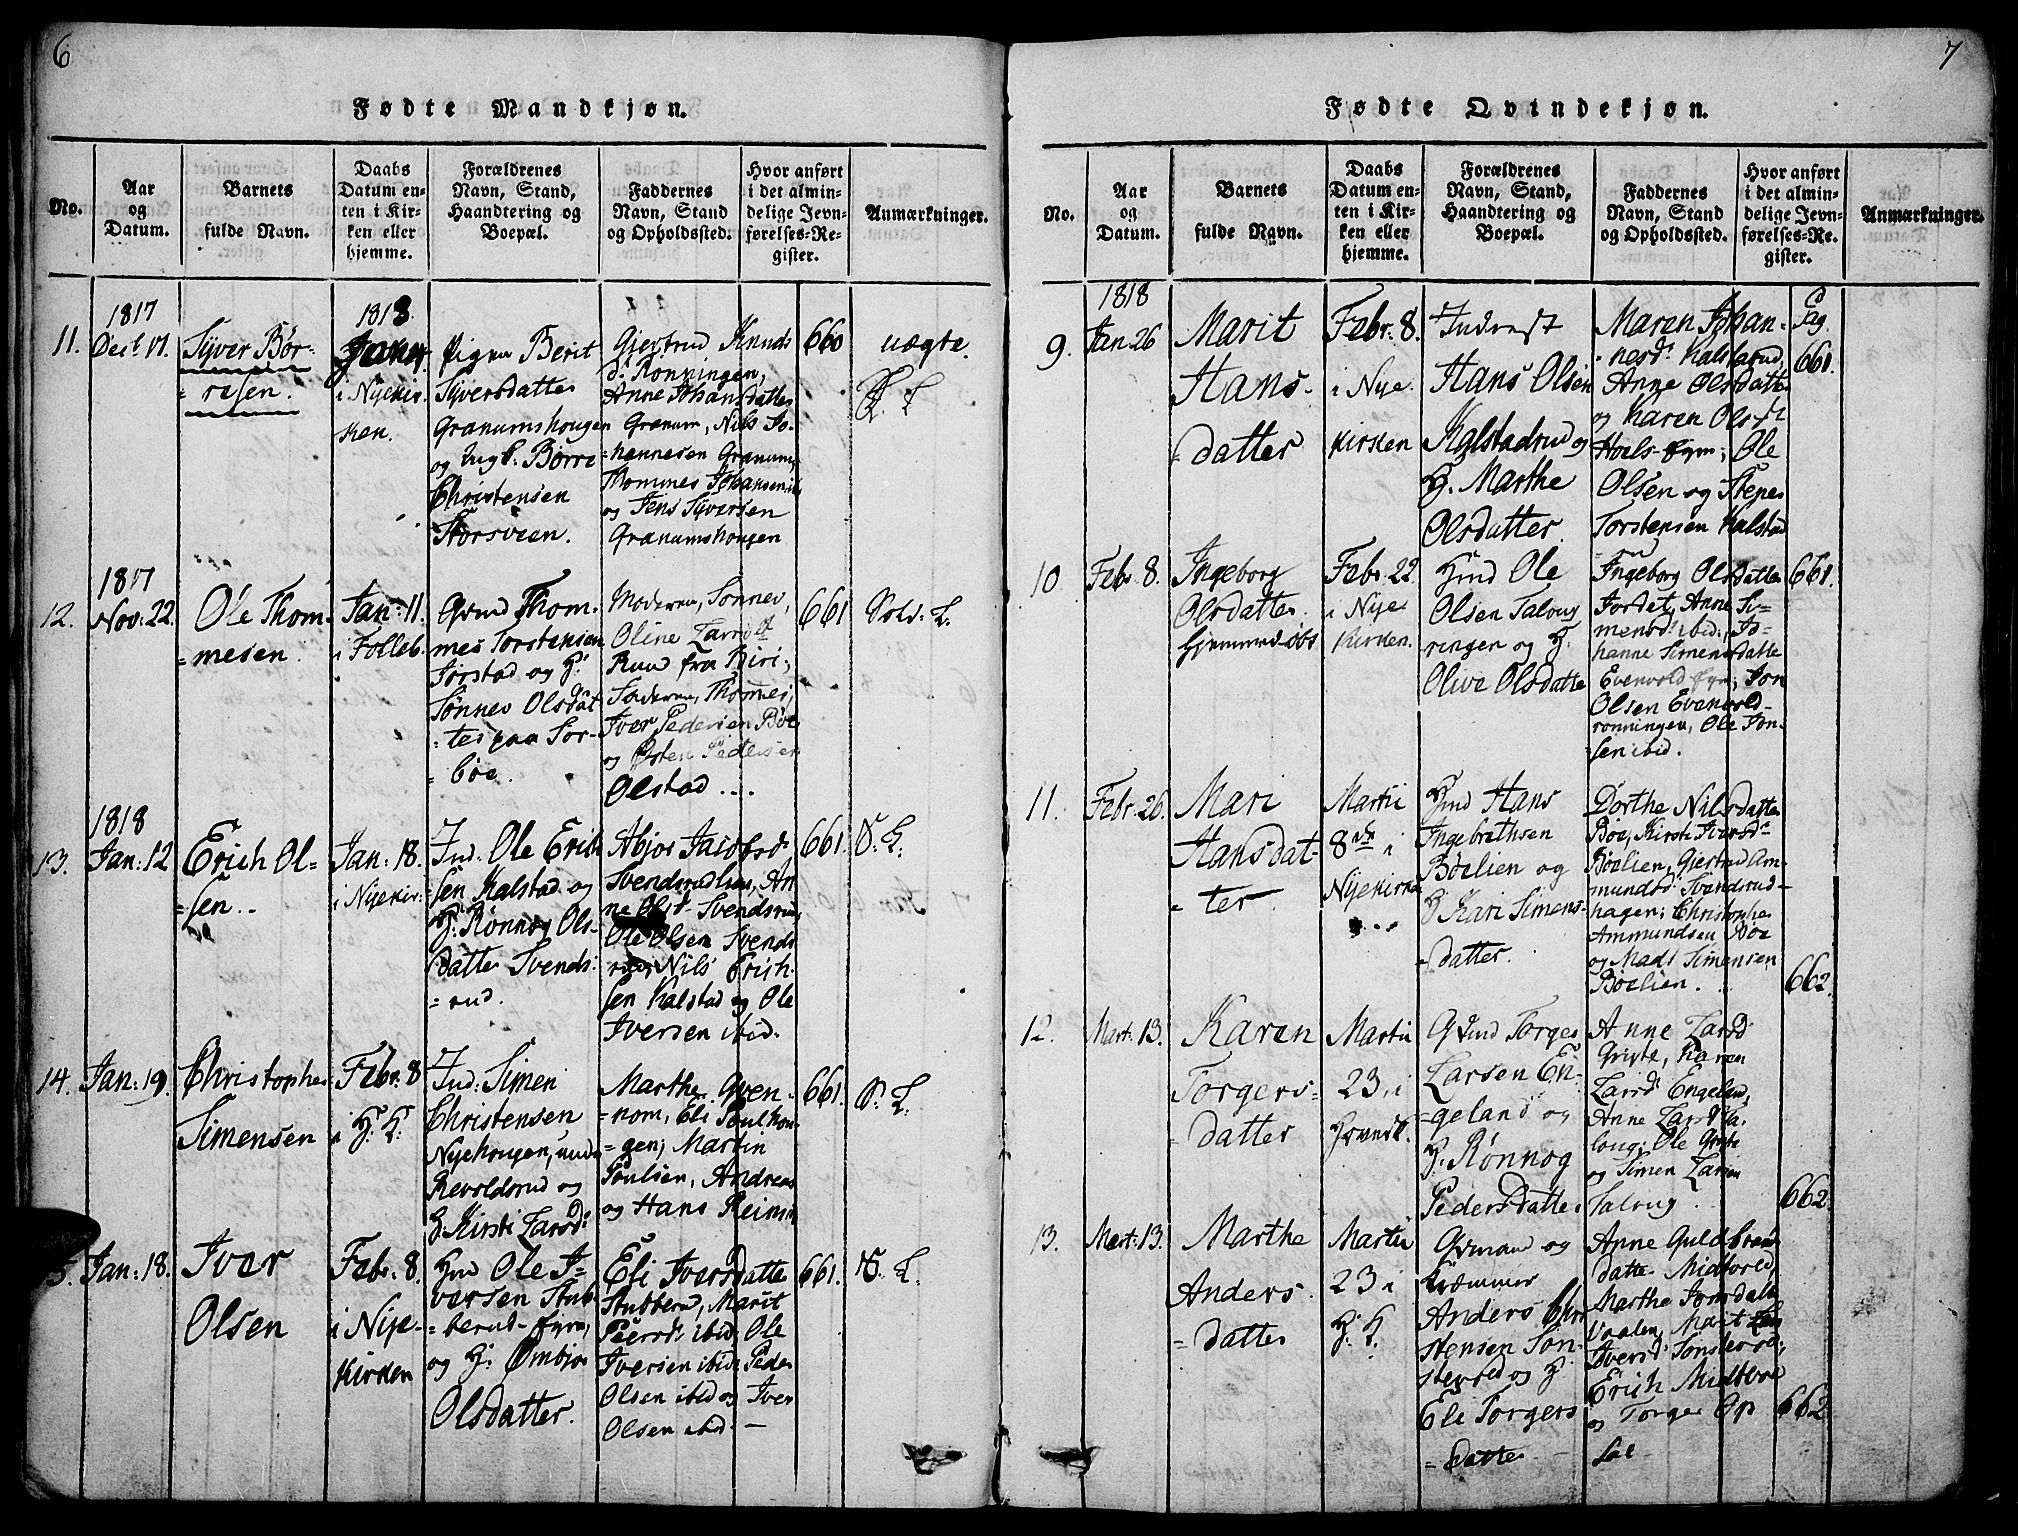 6
Fødte Mandkjøn.
No.
Aar
og
Datum.
Barnets
fulde Navn.
Daabs
Datum en-
ten i Kir-
ken eller
hjemme.
Forældrenes
Navn, Stand,
Haandtering og
Boepæl.
Faddernes
Navn, Stand
og Opholdssted.
Hvor anført
i det almin-
delige Jevn-
førelses-Re-
gister.
Anmærkninger.
11.
1817
Syver Bør-
= resen.
1818
i Nyekir-
ken.
Pigen Berit
Syversdatter
Granumshougen
og Ungk. Børre
Christensen
Storsveen.
Giertrud Knuds
d. Rønningen,
Anne Johansdatter
Granum, Nils Jo-
= hannesen Granum,
Thommes Johansen ib.
og Jens Syversen
Granumshougen
660
uægte.
12.
1817
Nov: 22.
Ole Thom-
= mesen.
Jan: 11.
i Folleb.
Gmd Thom-
mes Torstensen
Jorstad og H.
Sønnev Olsdat
= ter paa
= böe.
Moderen, Sønnev,
Oline Larsdt
Ruud fra Biri;
Faderen, Thomes,
Iver Pedersen Böe
og Østen Pedersen
Olstad ....
661
Sold: L.
13.
1818
Jan: 12
Erich Ol-
= sen..
Jan: 18.
i Nyekir.
Ind. Ole Erich
= sen Kalstad og
H. Rønnog Ols-
datter Svends-
= rud.
Abjør Jacobsd.
Svendsrudhau, An
ne Olsd. Svendsrud
Ole Olsen Svends
rud, Nils Erich-
sen Kalstad og Ole
Iversen ibid.
661.
S. L.
14.
Jan: 19.
Christopher
Simensen
Febr: 8
i H. K.
Ind: Simen
Christensen
Nyehougen, under
Revoldsrud og
H. Kirsti Larsd:
Marthe Qven-
= nom, Eli Poulhou-
= gen; Martin
Poulsen, Andreas
og Hans Reimm
661.
S. L.
Jan: 18.
Iver
Olsen
Febr: 8.
i Nye-
kirken
Hmd Ole I-
versen Stub
= berud-eyen,
og H. Ømbjør
Olsdatter.
Eli Iversdatter
Stubberud, Marit
Peersd. ibid, Ole
Iversen ibid Peder
Olsen ibid og Iver
Olsen ibid. —
661.
S. L.
7
Fødte Qvindekjøn.
No.
Aar
og
Datum.
Barnets
fulde Navn.
Daabs
Datum en-
ten i Kir-
ken eller
hjemme.
Forældrenes
Navn, Stand,
Haandtering og
Boepæl.
Faddernes
Navn, Stand
og Opholdssted.
Hvor anført
i det almin-
delige Jevn-
førelses-Re-
gister.
Anmærkninger.
9.
1818
Jan 26
Marit
Hans-
= datter
Febr. 8.
i Nye-
kirken
Inderst
Hans Olsen
Kalstadrud og
H. Marthe
Olsdatter.
Maren Johan-
nesd. Kalstarud
Anne Olsdatter
og Karen Olsdt
Hoels-eyen; Ole
Olsen og
Torstensen Kalstad
Pag.
661.
10
Febr. 8.
Ingeborg
Olsdatter.
Febr. 22
i Nye
Kirken.
Hmd Ole
Olsen
ringen og H.
Olive Olsdatter
Ingeborg Olsdatter
Jordet, Anne Si-
mensd. ibid., Jo-
hanne Simensdatter
Evenvold eyen; Jon
Olsen Evenvold-
rønningen, Ole Jon-
sen ibid.
661.
11.
Febr. 26.
Mari
Hansdat-
= ter.
Martii
8de i
Nyekirke
Hmd Hans
Ingebrethsen
Bøelien og
H. Kari Simens-
= datter.
Dorthe Nilsdatter
Böe, Kirsti Iversd.
Böelien, Giertrud Am-
mundsd. Svendsrud-
hagen; Christopher
Ammundsen Böe
og Mads Simensen
Böelien.
662.
12.
Mart: 13.
Karen
Torgers-
= datter
Martii
23, i
Gmd Torger
Larsen En-
= geland og
H. Rønnog
Pedersdatter
Anne Larsd
Griste, Karen
Larsd. Engeland,
Anne Larsd
og Simen Larsen
662
13.
Mart: 13.
Marthe
Anders-
= datter
Martii
23 i
H. K.
Gmand og
Kræmmer
Anders Chri
stensen Søn-
stevold og H.
Eli Torgers-
= datter
Anne Guldbrands
datter Midtvold,
Marthe Jonsdatter
Vaalen, Marit
Iversd. Sønstevold,
Erich Midtvold
og Torger Op
sal
662